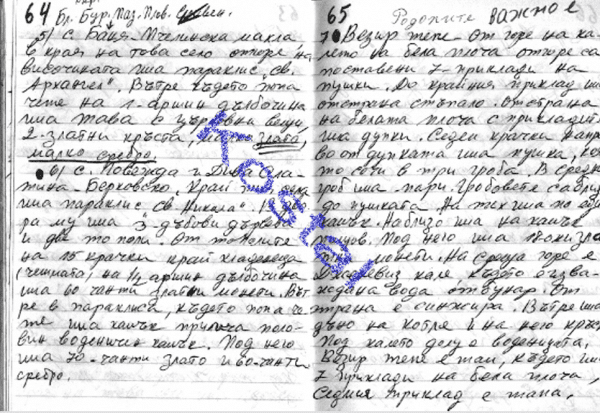 64 Бл. Бур. Паз. Плов.
5) с. Баня - Мчелинска махла
в края на това село отгоре на
височината има параклис „св.
Архангел". Вътре където попа
чете на 1-аршин дълбочина
има тава с църковни вещи
2-златни кръста, злато,
малко сребро.
6) с. и Дива Сла-
тина - Берковско. Край
има параклис „св. Никола".
ра му има 3-дъбови дървета
и две то попи. От тополите
на 15 крачки край кладенеца
(чешмата) на 1/2 аршин дълбочина
има 60 чанти златни монети. Вът-
ре в параклиса, където попа че-
те има камък прилича поло-
вин воденичен камък. Под него
има 70-чанти злато и 60-чанти
сребро.
65 Родопите важное
7) Везир тепе - от горе на ка-
лето на бела плоча отгоре са
поставени 7-приклади на
пушки. До крайния приклад има
отстрана стъпало. От страна
на белата плоча с прикладите
има дупки. Седем крачки напра-
во от дупката има пушка, коя-
то сочи в три гроба. В средния
гроб има пари. Гробовете са
до пушката. На тех има по един
камък. Наблизо има на камък
Под него има 18 оки зла-
монети. На среща горе е
кале където е
вода от бунар. От
страна е синжира. Вътре има
дъно на котле и на него кръст
Под калето долу е воденицата.
Везир тепе е тай, където има
7 приклади на бела плоча,
Седмия приклад е тапа.
Kostaj